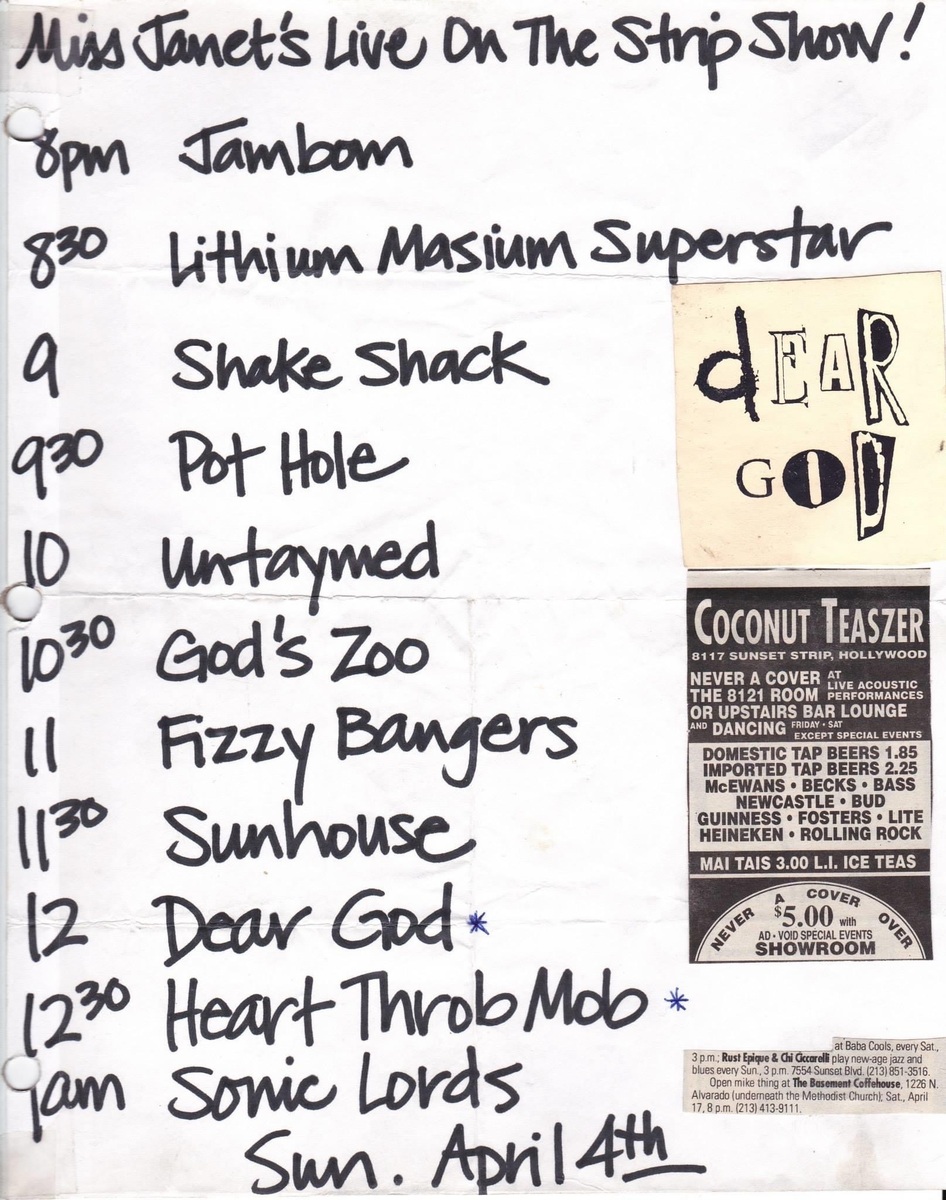 Miss Janet's Live On The Strip Show!
8pm Jambom
8 30 Lithium Masium Superstar
9 Shake Shack
9 30 Pot Hole
10 Untaymed
10 30 God's Zoo
11 Fizzy Bangers
11 30 Sunhouse
12 Dear God *
12 30 Heart Throb Mob *
1am Sonic Lords
Sun. April 4th
dEAR
GOD
COCONUT TEASZER
8117 SUNSET STRIP, HOLLYWOOD
NEVER A COVER AT LIVE ACOUSTIC
THE 8121 ROOM PERFORMANCES
OR UPSTAIRS BAR LOUNGE
AND DANCING FRIDAY • SAT
EXCEPT SPECIAL EVENTS
DOMESTIC TAP BEERS 1.85
IMPORTED TAP BEERS 2.25
McEWANS • BECKS • BASS
NEWCASTLE • BUD
GUINNESS • FOSTERS • LITE
HEINEKEN • ROLLING ROCK
MAI TAIS 3.00 L.I. ICE TEAS
NEVER A COVER OVER
$5.00 with
AD • VOID SPECIAL EVENTS
SHOWROOM
at Baba Cools, every Sat.,
3 p.m.; Rust Epique & Chi Ciccarelli play new-age jazz and
blues every Sun., 3 p.m. 7554 Sunset Blvd. (213) 851-3516.
Open mike thing at The Basement Coffehouse, 1226 N.
Alvarado (underneath the Methodist Church); Sat., April
17, 8 p.m. (213) 413-9111.